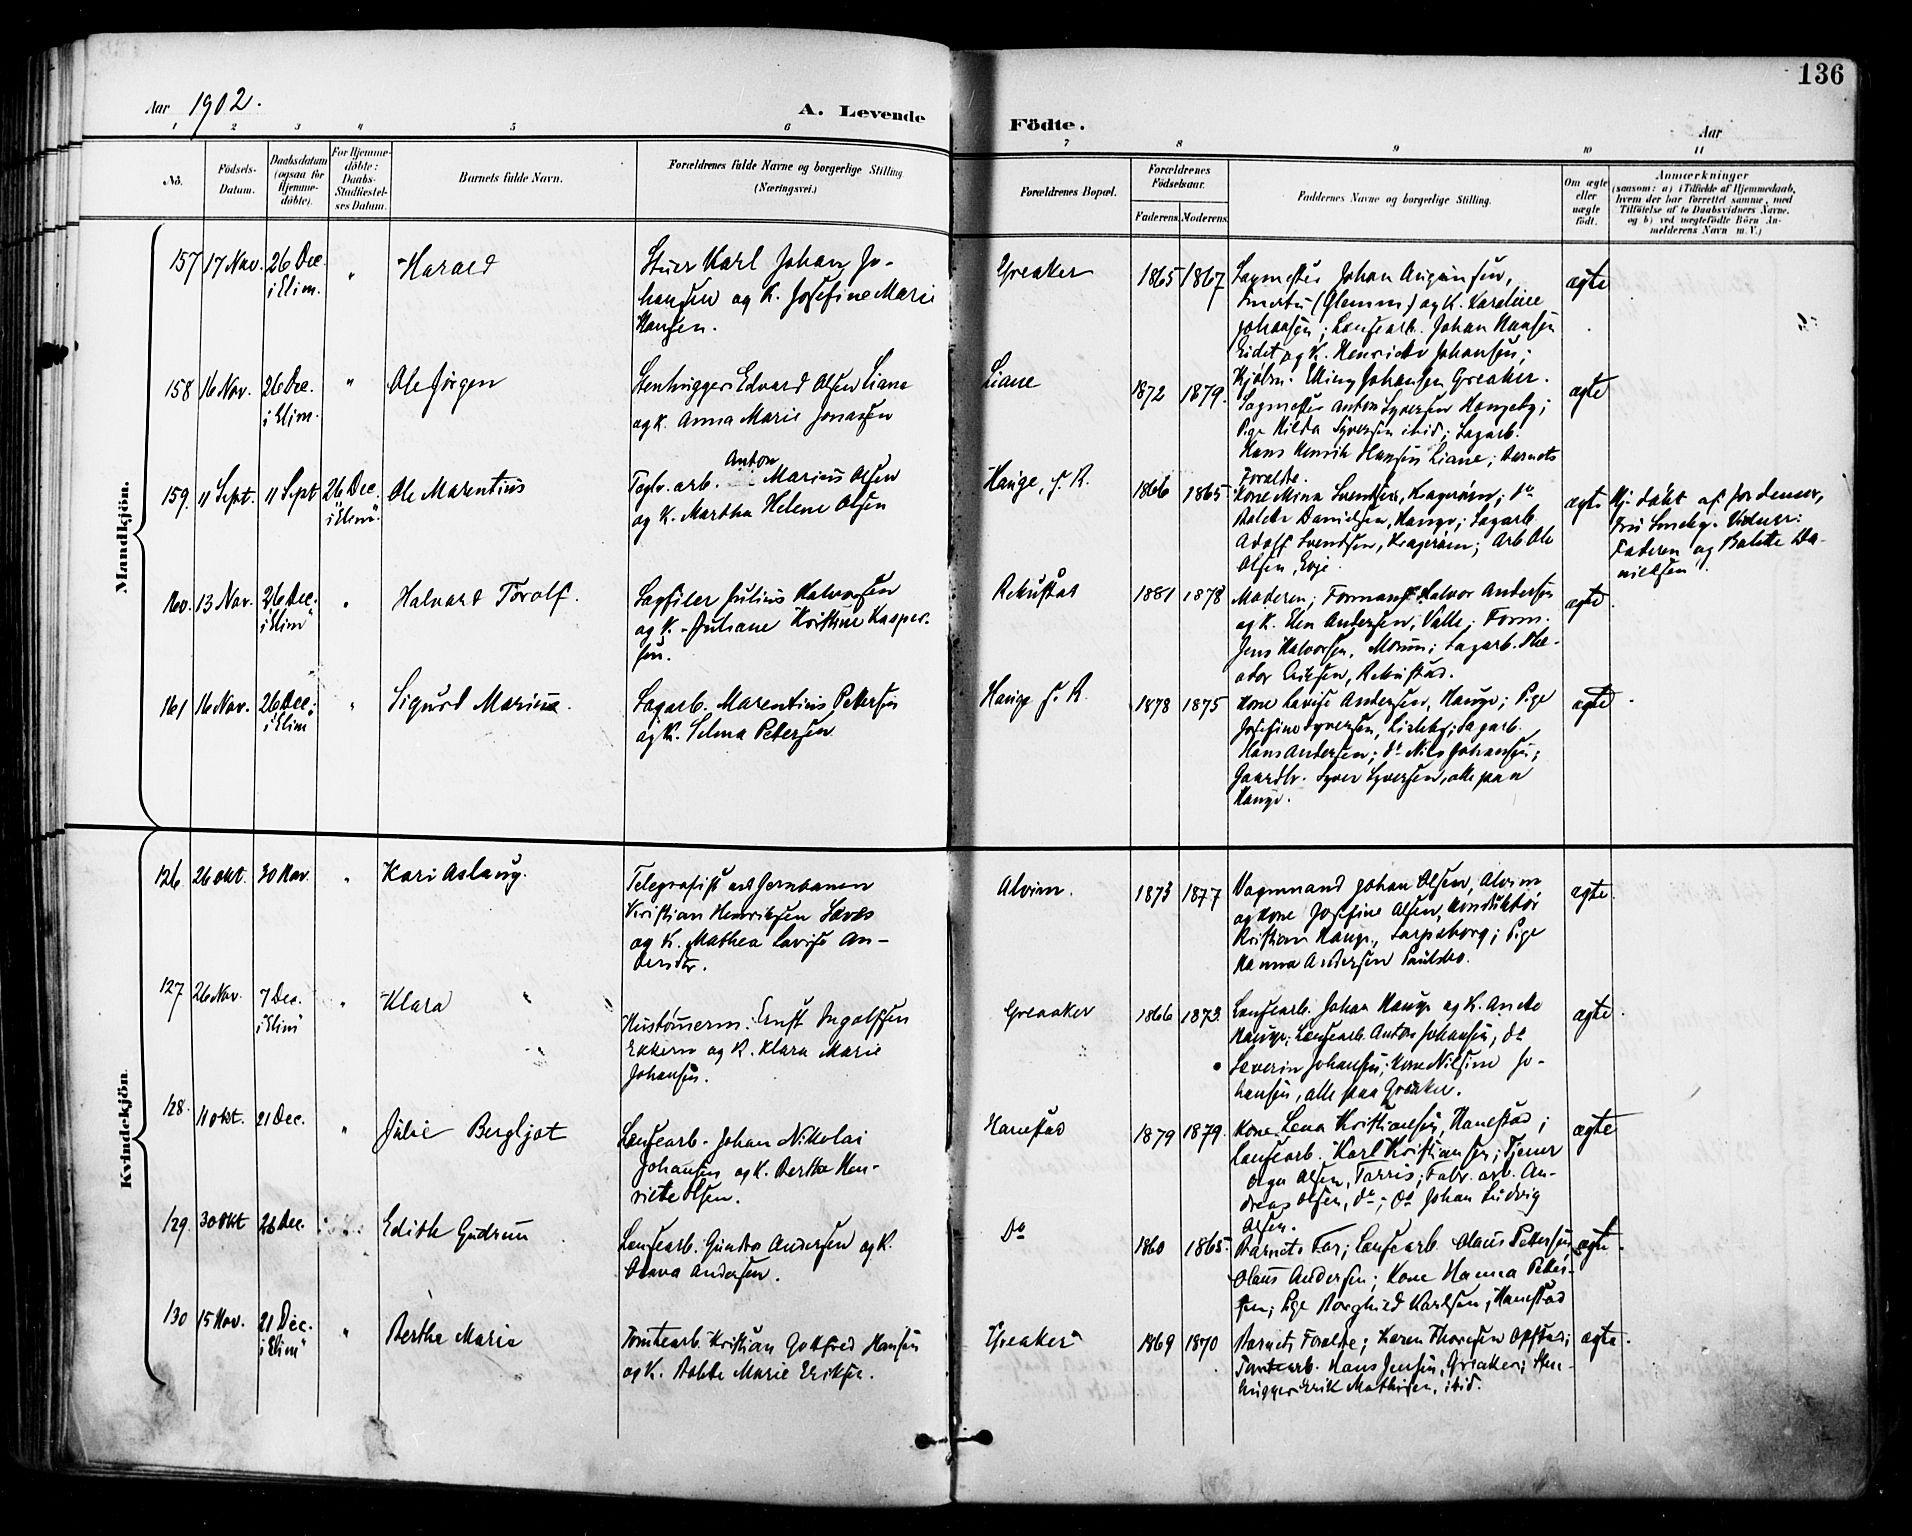 136
Aar 1902.
A. Levende Födte.
Aar
1 2 3 4 5 6 7 8 9 10 11
Nô.
Födsels-Datum.
Daabsdatum (ogsaa for Hjemme-döbte).
For Hjemme-döbte: Daabs-Stadfæstel-ses Datum.
Barnets fulde Navn.
Forældrenes fulde Navne og borgerlige Stilling (Næringsvei.)
Forældrenes Bopæl.
Forældrenes Födselsaar.
Faderens. Moderens.
Faddernes Navne og borgerlige Stilling.
Om ægte eller uægte födt.
Anmærkninger
(saasom: a) i Tilfælde af Hjemmedaab,
hvem der har forrettet samme, med
Tilföielse af to Daabsvidners Navne.
og b) ved uægtefödte Börn An-
melderens Navn m. V.)
Mandkjön.
157 17 Nov. 26 Dec. i Elim. " Harald
Stuer Karl Johan Jo-
hansen og K. Josefine Marie
Hansen.
Greaker 1865 1867
Sagmester Johan
(Glemm) og K. Karoline
Johansen; Lænsearb. Johan Hansen
Eidet og K. Henriette Johansen;
Johansen Greaker.
ægte
158 16 Nov. 26 Dec. i Elim. " Ole Jörgen
Stenhugger Edvard Olsen Liane
og K. Anna Marie Jonassen
Liane 1872 1879.
Sagmester Anton Syversen Haugeby;
Pige Hilda Syversen ibid; Sagarb.
Hans Henrik Hansen Liane; Barnets
Forældre.
ægte
159. 11 Sept. 11 Sept 26 Dec. i "Elim". Ole Marentius
Teglv. arb. Anton Marius Olsen
og K. Martha Helene Olsen
Hauge, s. R. 1866 1865
Kone Mina Svendsen, Kragerøen; do
Bolette Danielsen, Hauge; Sagarb.
Adolf Svendsen, Kragerøen; Arb. Ole
Olsen, Evje.
ægte
Hj. døbt af Jordemor,
Fru Smeby. Vidner:
Faderen og Bolette Da-
nielsen.
160. 13 Nov. 26 Dec. i "Elim" " Halvard Torolf.
Sagfiler Julius Halvorsen
og K. Juliane Kristine Kasper-
sen.
Rekustad 1881 1878
Moderen; Formand Halvor Andersen
og K. Elen Andersen, Valle; Form.
Jens Halvorsen, Moum; Sagarb. The-
odor Eriksen, Rekustad.
ægte
161 16 Nov. 26 Dec. i "Elim" " Sigurd Marius.
Sagarb. Marentius Petersen
og K. Selma Petersen
Hauge s. R. 1878 1875
Kone Lovise Andersen, Hauge; Pige
Josefine Syversen, Lisleby; Sagarb.
Hans Andersen; do Nils Johansen;
Gaardbr. Syver Syversen, alle paa
Hauge.
ægte
Kvindekjön
126 26 Okt. 30 Nov. " Kari Aslaug.
Telegrafist ved Jernbanen
Kristian Henriksen
og K. Mathea Lovise An-
Alvim. 1873 1877
Vognmand Johan Olsen, Alvim
og Kone Josefine Olsen, Konduktör
Kristian Hauge, Sarpsborg; Pige
Hanna Andersen Paulsbo.
ægte
127 26 Nov. 7 Dec. i "Elim" " Klara
Hustømerm. Ernst Ingolfsen
Ekkern og K. Klara Marie
Johansen.
Greaaker 1866 1873
Lænsearb. Johan Hauge og K. Anette
Hauge; Lænsearb. Anton Johansen, do
Severin Johansen; Kone Nilsine Jo-
hansen, alle paa Greaker.
ægte
128. 11 Okt. 21 Dec. " Julie Bergljot
Lænsearb. Johan Nikolai
Johansen og K. Berthe Hen-
riette Olsen.
Hanestad 1879 1879.
Kone Lena Kristiansen, Hanestad;
Lænsearb. Karl Kristiansen; Tjener
Olga Olsen, Torris; Fabr. arb. An-
dreas Olsen, do; do Johan Ludvig
Olsen.
ægte
129. 30 Okt 26 Dec. Edith Gudrun
Lænsearb. Gunder Andersen og K.
Olava Andersen.
Do 1860 1865
Barnets Far; Lænsearb. Olaus Pettersen,
Olaus Andersen; Kone Hanna Peter-
sen; Pige Borghild Karlsen, Hanestad
ægte
130 15 Nov. 21 Dec. i "Elim" " Berthe Marie
Tomtearb. Kristian Gotfred Hansen
og K. Bolette Marie Eriksen.
Greaker 1869 1870
Barnets Forældre; Karen Thoresen Opstad;
Tomtearb. Hans Jensen, Greaker; Sten-
hugger Erik Mathisen, ibid.
ægte